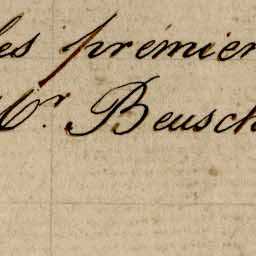 les prémier
Mr. Beusch